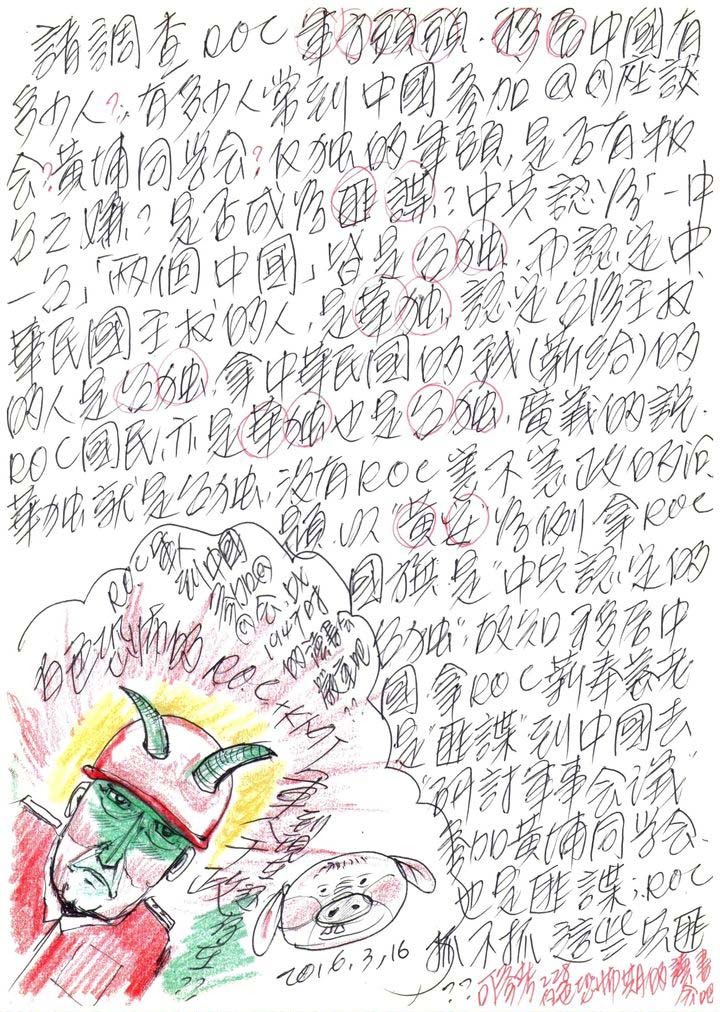 請調查ROC軍頭頭,移居中國有
多少人?有多少人常到中國參加@@座談
会?黃埔同学会?反独的軍頭,是否有叛
台之嫌?是否成为匪諜?中共認为「一中
一台」「兩個中國」皆是台独,而認定中
華民國主权的人,是華独,認定台湾主权
的人是台独,拿中華民國的錢(薪給)的
ROC國民,亦是華独也是台独,廣義的說,
華独就是台独,沒有ROC憲不憲政的问
題,以"黃"为例拿ROC
國旗是"中共認定的
台独",故知移居中
國拿ROC薪奉養老
是"匪諜"到中國去
"研討軍事会議"
參加黃埔同学会,
也是匪諜;ROC
抓不抓這些共匪
??
到中國
參加@
@会,比
1947时
的讀書会
白色恐怖的ROC+KMT
2016,3,16
可參考228白色恐怖期的讀書会吧